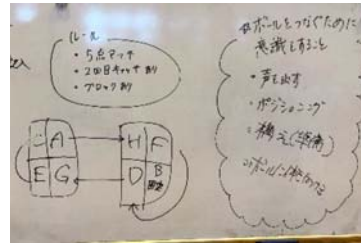 ルール
・5点マッチ
・2回目キャッチあり
・ブロックあり
A
H F
E G
D B
※ボールをつなぐために
意識をすること
・声を出す
・ポジショニング
・構え(準備)